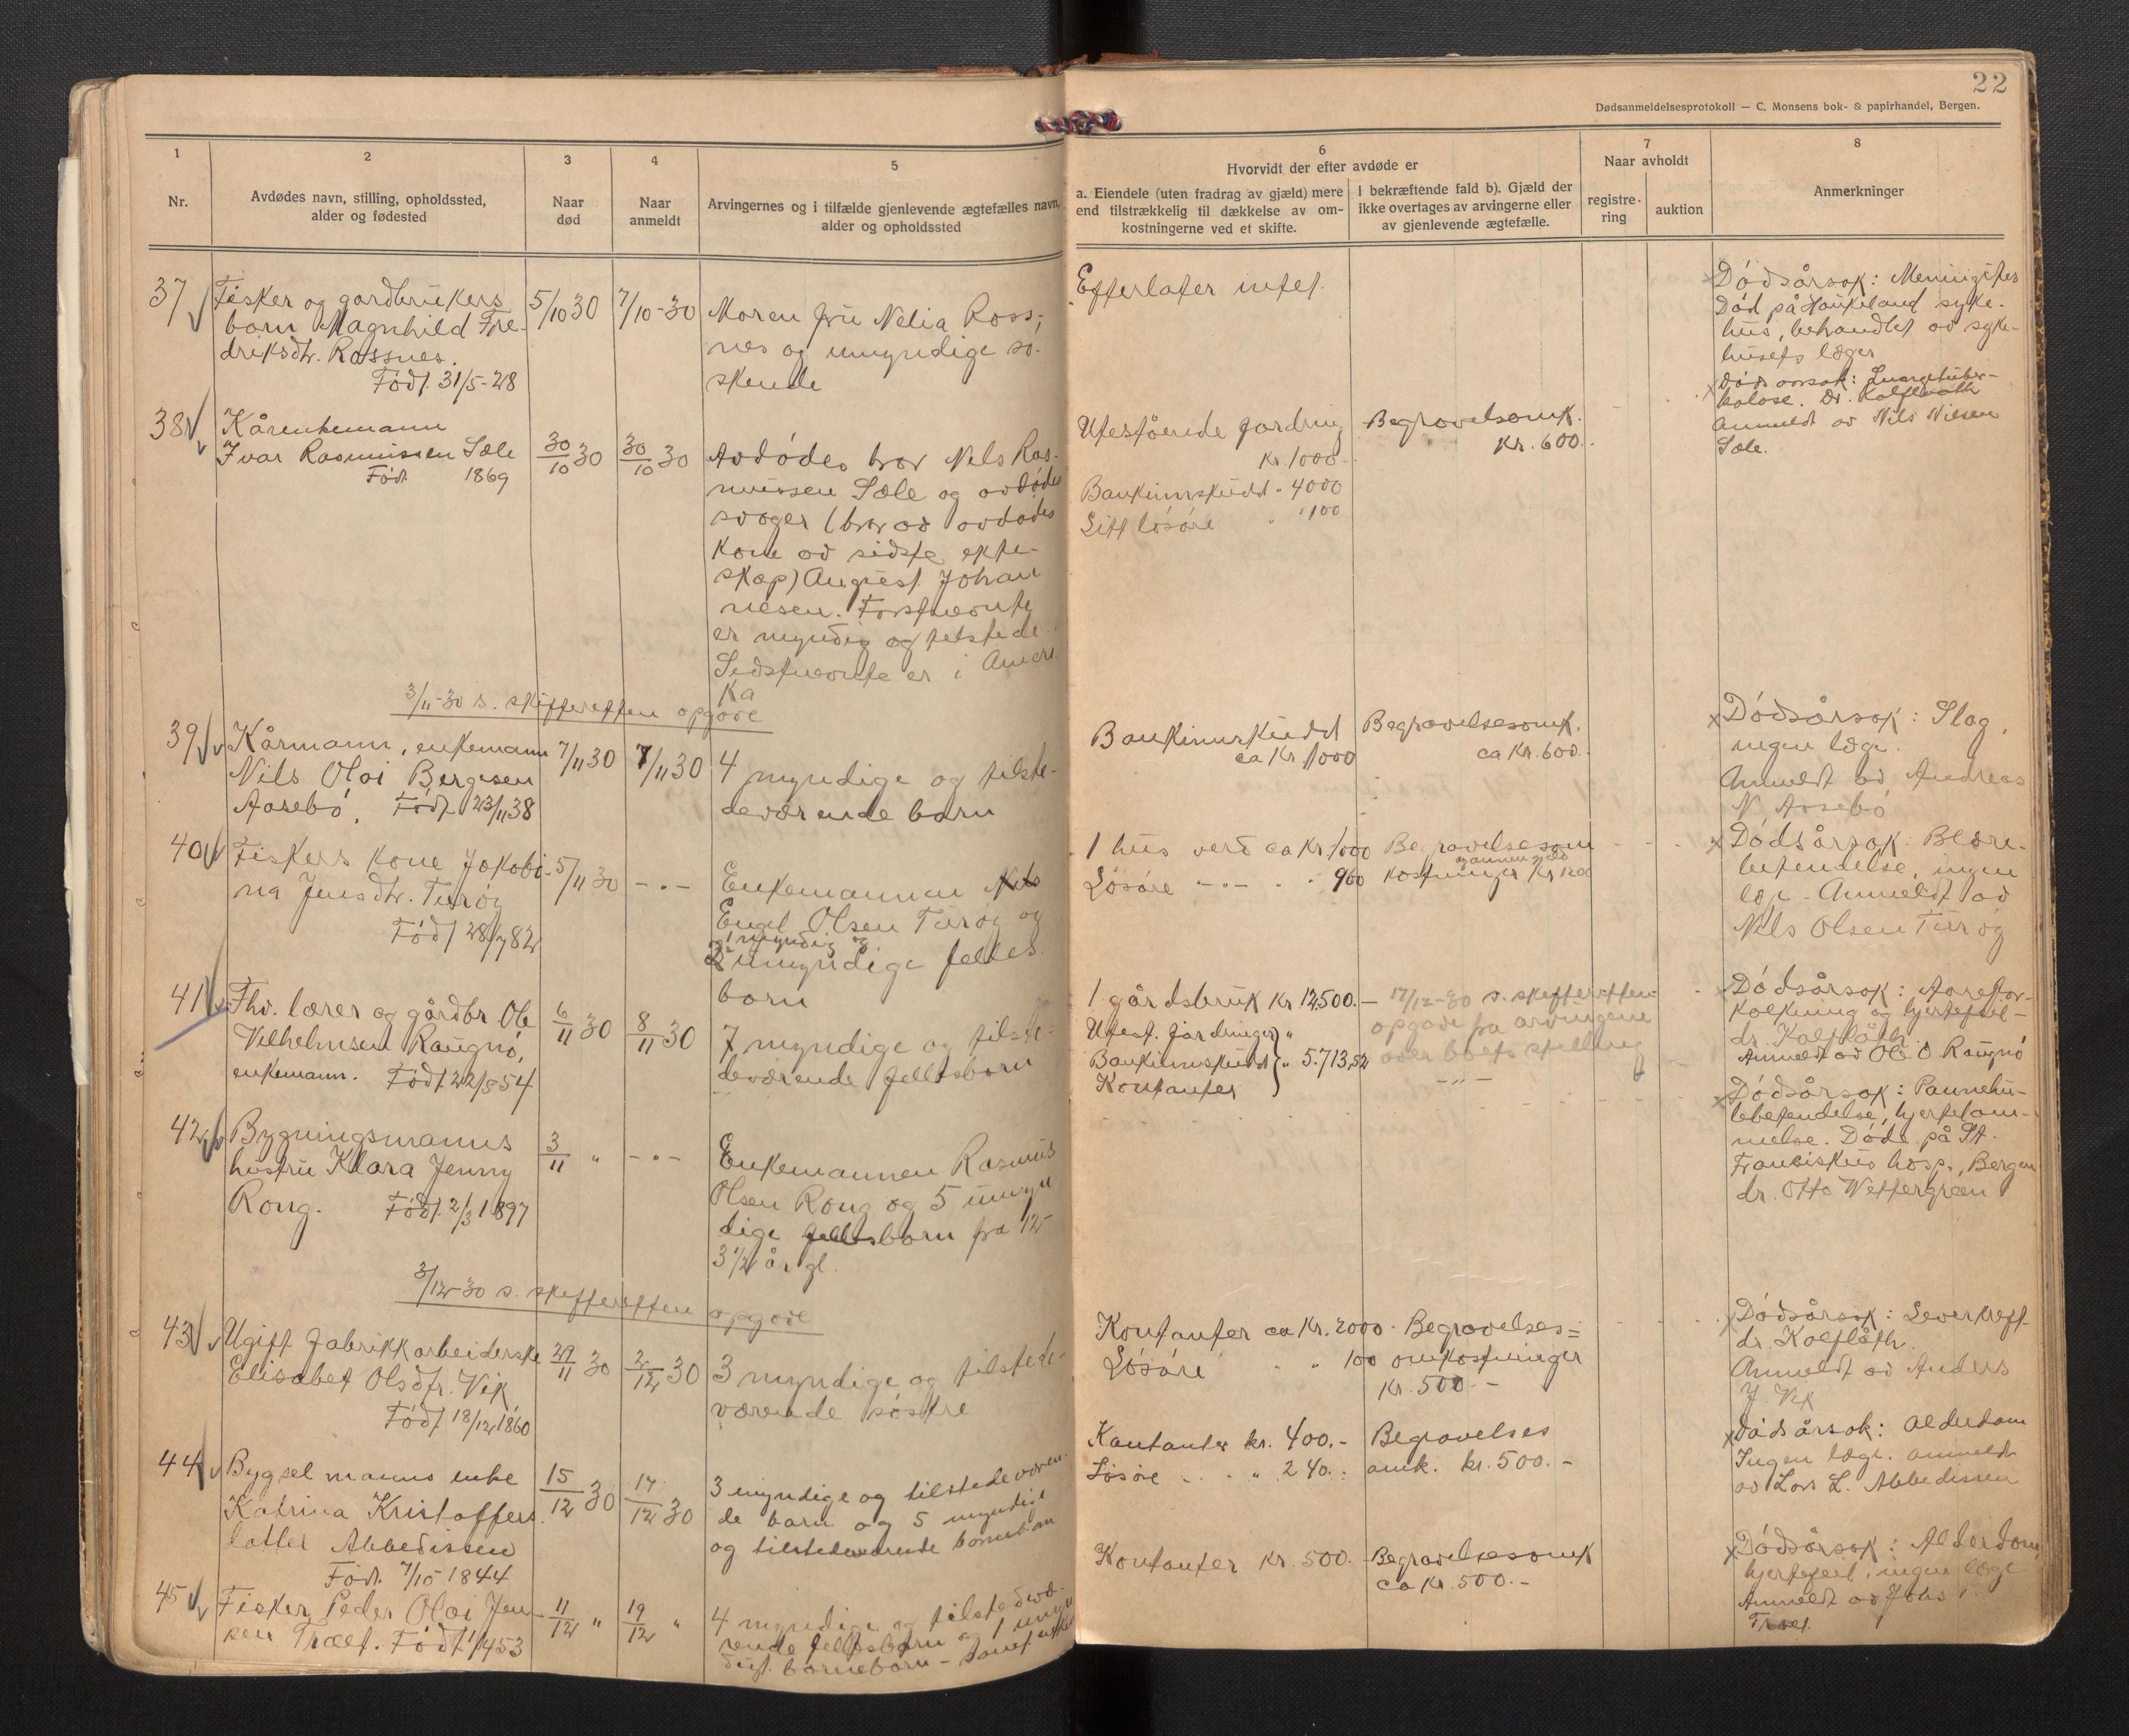 22
Dødsanmeldelsesprotokoll — C. Monsens bok- & papirhandel, Bergen.
1
Nr.
2
Avdødes navn, stilling, opholdssted,
alder og fødested
3
Naar
død
4
Naar
anmeldt
5
Arvingernes og i tilfælde gjenlevende ægtefælles navn,
alder og opholdssted
6
Hvorvidt der efter avdøde er
a. Eiendele (uten fradrag av gjæld) mere
end tilstrækkelig til dækkelse av om-
kostningerne ved et skifte.
I bekræftende fald b). Gjæld der
ikke overtages av arvingerne eller
av gjenlevende ægtefælle.
7
Naar avholdt
registre-
ring
auktion
8
Anmerkninger
37
Fisker og gardbrukers
barn Magnhild Fre-
driksdtr. Rossnes.
Født 31/5-28
5/10 30
7/10-30
Moren fru Nelia Ross-
nes og umyndige sø-
skende
Efterlater intet.
Dødsårsak: Meningites
Død på Haukeland syke-
hus, behandlet av syke-
husets læger
38
Kårenkemann
Ivar Rasmussen Sæle
Født 1869
30/10 30
30/10 30
Avdødes bror Nils Ras-
mussen Sæle og avdødes
svoger (bror av avdødes
kone av sidste ekte-
skap) August Johan
nesen. Førstnevnte
er myndig og tilstede
Sidstnevnte er i Ameri
ka
Utestående fordring
kr. 1000-
Bankinnskudd " 4000
Litt løsøre " 100
Begravelsesomk.
kr. 600.-
Dødsårsak: Lungetuber-
kolose. Dr. Kalfløth
Anmeldt av Nils Nilsen
Sæle.
3/11-30 s. skifteretten opgave
39
Kårmann, enkemann
Nils Olai Bergesen
Aasebø, Født 23/11 38
7/11 30
7/11 30
4 myndige og tilste-
deværende barn
Bankinnskudd
ca kr 1000
Begravelsesomk.
ca kr. 600.-
Dødsårsak: Slag,
ingen læge.
Anmeldt av Andreas
N. Aasebø
40
Fiskers kone Jakobi-
na Jensdtr. Turøy
Født 28/7 82
5/11 30
- " -
Enkemannen
Engel Olsen Turøy og
1 myndig og
2 umyndige felles
barn
1 hus verd ca kr. 1000
Løsøre - " - " 960
Begravelsesom
kostninger kr
Dødsårsak: Blære-
betendelse, ingen
lege. Anmeldt av
Nils Olsen Turøy
41
Fhv. lærer og gårdbr Ole
Vilhelmsen Raugnø,
enkemann. Født 22/8 54
6/11 30
8/11 30
7 myndige og tilste-
deværende fellesbarn
1 gårdsbruk kr 12,500.-
Utest. fordringer "
Bankinnskudd " 5.713,52
Kontanter
17/12-30 s. skifteretten
opgave fra arvingene
over boets stilling
- " -
Dødsårsak: Aarefor-
kalkning og hjertefeil -
dr. Kalfløth
Anmeldt av Ole O. Raugnø
42
Bygningsmanns
hustru Klara Jenny
Rong. Født 2/3 1897
3/11 "
- " -
Enkemannen Rasmus
Olsen Rong og 5 umyn
dige fellesbarn fra 12-
3 1/2 år gl.
Dødsårsak: Pannehu-
lebetendelse, hjertelam-
melse. Døde på St.
Fransiskus hosp., Bergen
dr. Otto Wettergreen
3/12-30 s. skifteretten opgave
43
Ugift fabrikkarbeiderske
Elisabet Olsdtr. Vik
Født 18/12 1860
29/11 30
2/12 30
3 myndige og tilstede-
værende søstre
Kontanter ca kr. 2000.
Løsøre " " 100
Begravelses=
omkostninger
kr. 500.-
Dødsårsak: Leverkreft
dr. Kalfløth.
Anmeldt av Anders
J. Vik
44
Bygselmanns enke
Katrina Kristoffers
datter Abbedissen
Født. 7/10 1844
15/12 30
17/12 30
3 myndige og tilstedeværen-
de barn og 5 myndige
og tilstedeværende barnebarn
Kontanter kr. 400.-
Løsøre " 240.-
Begravelses
omk. kr. 500.-
Dødsårsak: Alderdom
Ingen læge. anmeldt
av Lars L. Abbedissen
45
Fisker Peder Olai Jen-
sen Træet. Født 1/4 53
11/12 "
19/12 "
4 myndige og tilstedevæ-
rende fellesbarn og 1 umyn
digt barnebarn -
Kontanter kr. 500.
Begravelsesomk
ca kr. 500.-
Dødsårsak: Alderdom,
hjertefeil, ingen læge
Anmeldt av Jens P.
Træet.